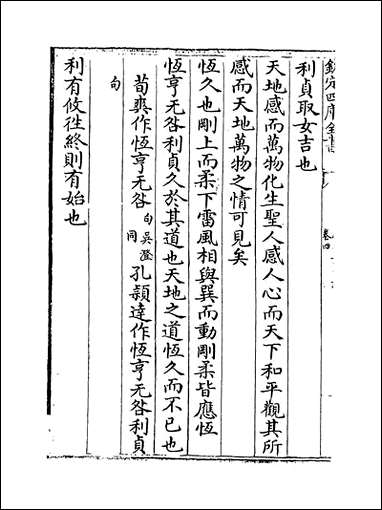 欽定四庫全書
卷四
利貞取女吉也
天地感而萬物化生聖人感人心而天下和平觀其所
感而天地萬物之情可見矣
恆久也剛上而柔下雷風相與巽而動剛柔皆應恆
恆亨无咎利貞久於其道也天地之道恆久而不已也
荀爽作恆亨无咎句吳澄同孔穎達作恆亨无咎利貞
句
利有攸往終則有始也